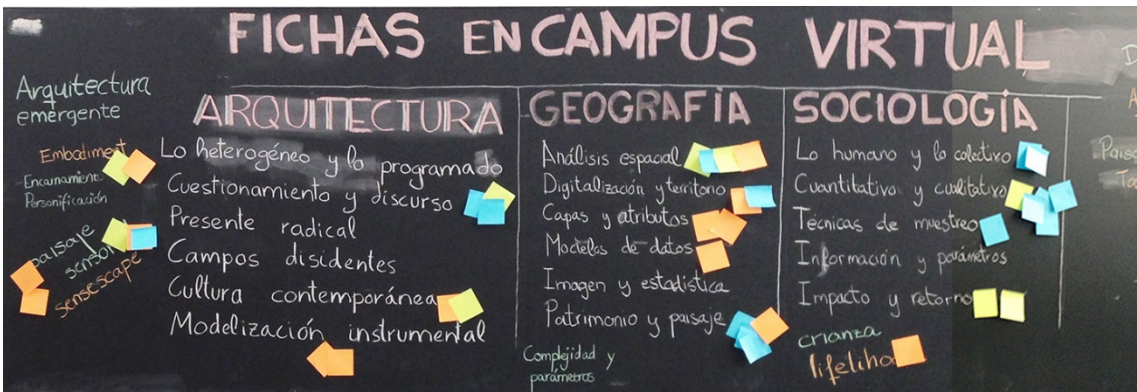 FICHAS EN CAMPUS VIRTUAL
Arquitectura
emergente
Embodiment
Encarnamiento
Personificación
paisaje
sensorial
sensescape
ARQUITECTURA
Lo heterogéneo y lo programado
Cuestionamiento y discurso
Presente radical
Campos disidentes
Cultura contemporánea
Modelización instrumental
GEOGRAFÍA
Análisis espacial
Digitalización y territorio
Capas y atributos
Modelos de datos
Imagen y estadística
Patrimonio y paisaje
Complejidad y
parámetros
SOCIOLOGÍA
Lo humano y lo colectivo
Cuantitativo y cualitativo
Técnicas de muestreo
Información y parámetros
Impacto y retorno
crianza